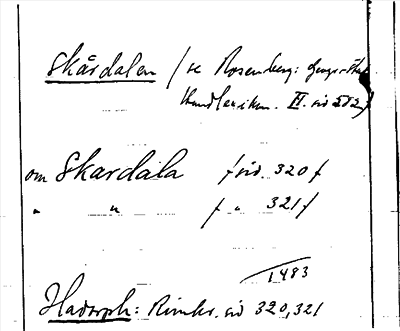 Skårdalen / se Rosenberg: Geogr-Stat.
Handlexikon. II. sid 582 /
om Skardala / sid. 320 /
" " / " 321 /
1483
Hadorph: Rimkr. sid 320, 321